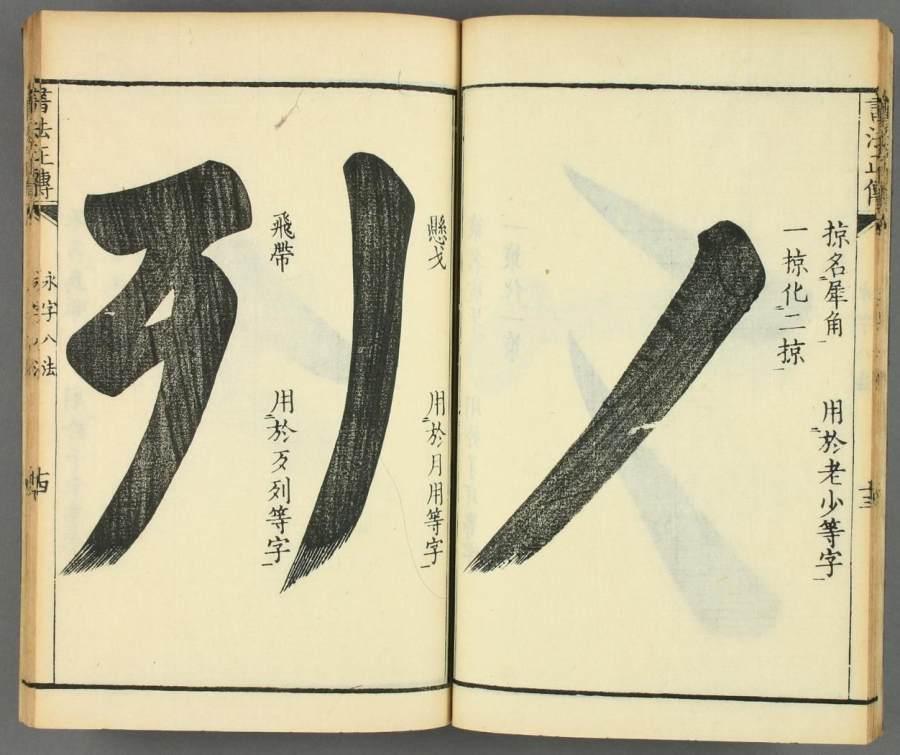 書法正傳
掠名犀角 用於老少等字
一掠化二掠
十三
懸戈 用於月用等字
飛帶 用於歹列等字
書法正傳
永字八法
十四